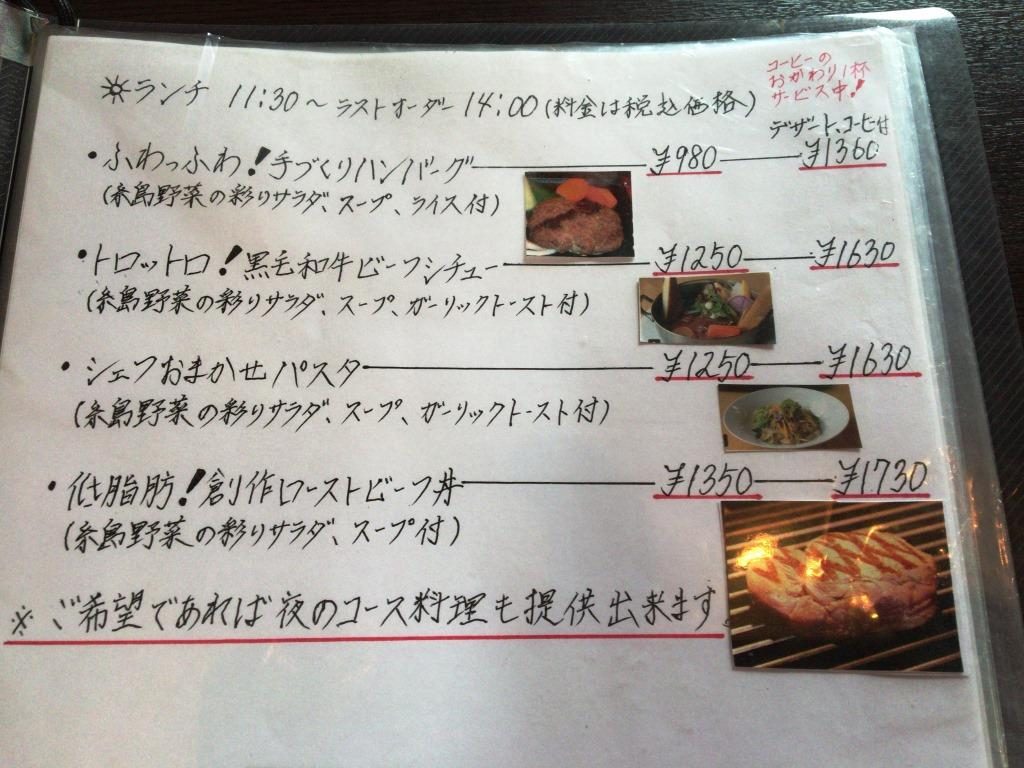 コーヒーの
おかわり1杯
サービス中!
☀ランチ 11:30~ラストオーダー14:00(料金は税込価格)
デザート、コーヒー付
・ふわっふわ!手づくりハンバーグ ¥980 ¥1360
(糸島野菜の彩りサラダ、スープ、ライス付)
・トロットロ!黒毛和牛ビーフシチュー ¥1250 ¥1630
(糸島野菜の彩りサラダ、スープ、ガーリックトースト付)
・シェフおまかせパスタ ¥1250 ¥1630
(糸島野菜の彩りサラダ、スープ、ガーリックトースト付)
・低脂肪!創作ローストビーフ丼 ¥1350 ¥1730
(糸島野菜の彩りサラダ、スープ付)
※ご希望であれば夜のコース料理も提供出来ます